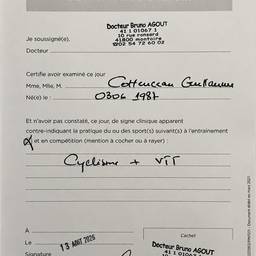 Docteur Bruno AGOUT
41 1 01067 1
10 rue ronsard
41800 montoire
☎02 54 72 60 02
Je soussigné(e),
Docteur
Certifie avoir examiné ce jour
Mme, Mlle, M. Guillaume
Né(e) le : 0306 1987
Et n'avoir pas constaté, ce jour, de signe clinique apparent
contre-indiquant la pratique du ou des sport(s) suivant(s) à l'entrainement
et en compétition (mention à cocher ou à rayer) :
Cyclisme + VTT
À
Le 13 AOUT 2025
Signature
Cachet
Docteur Bruno AGOUT
41 1 01067 1